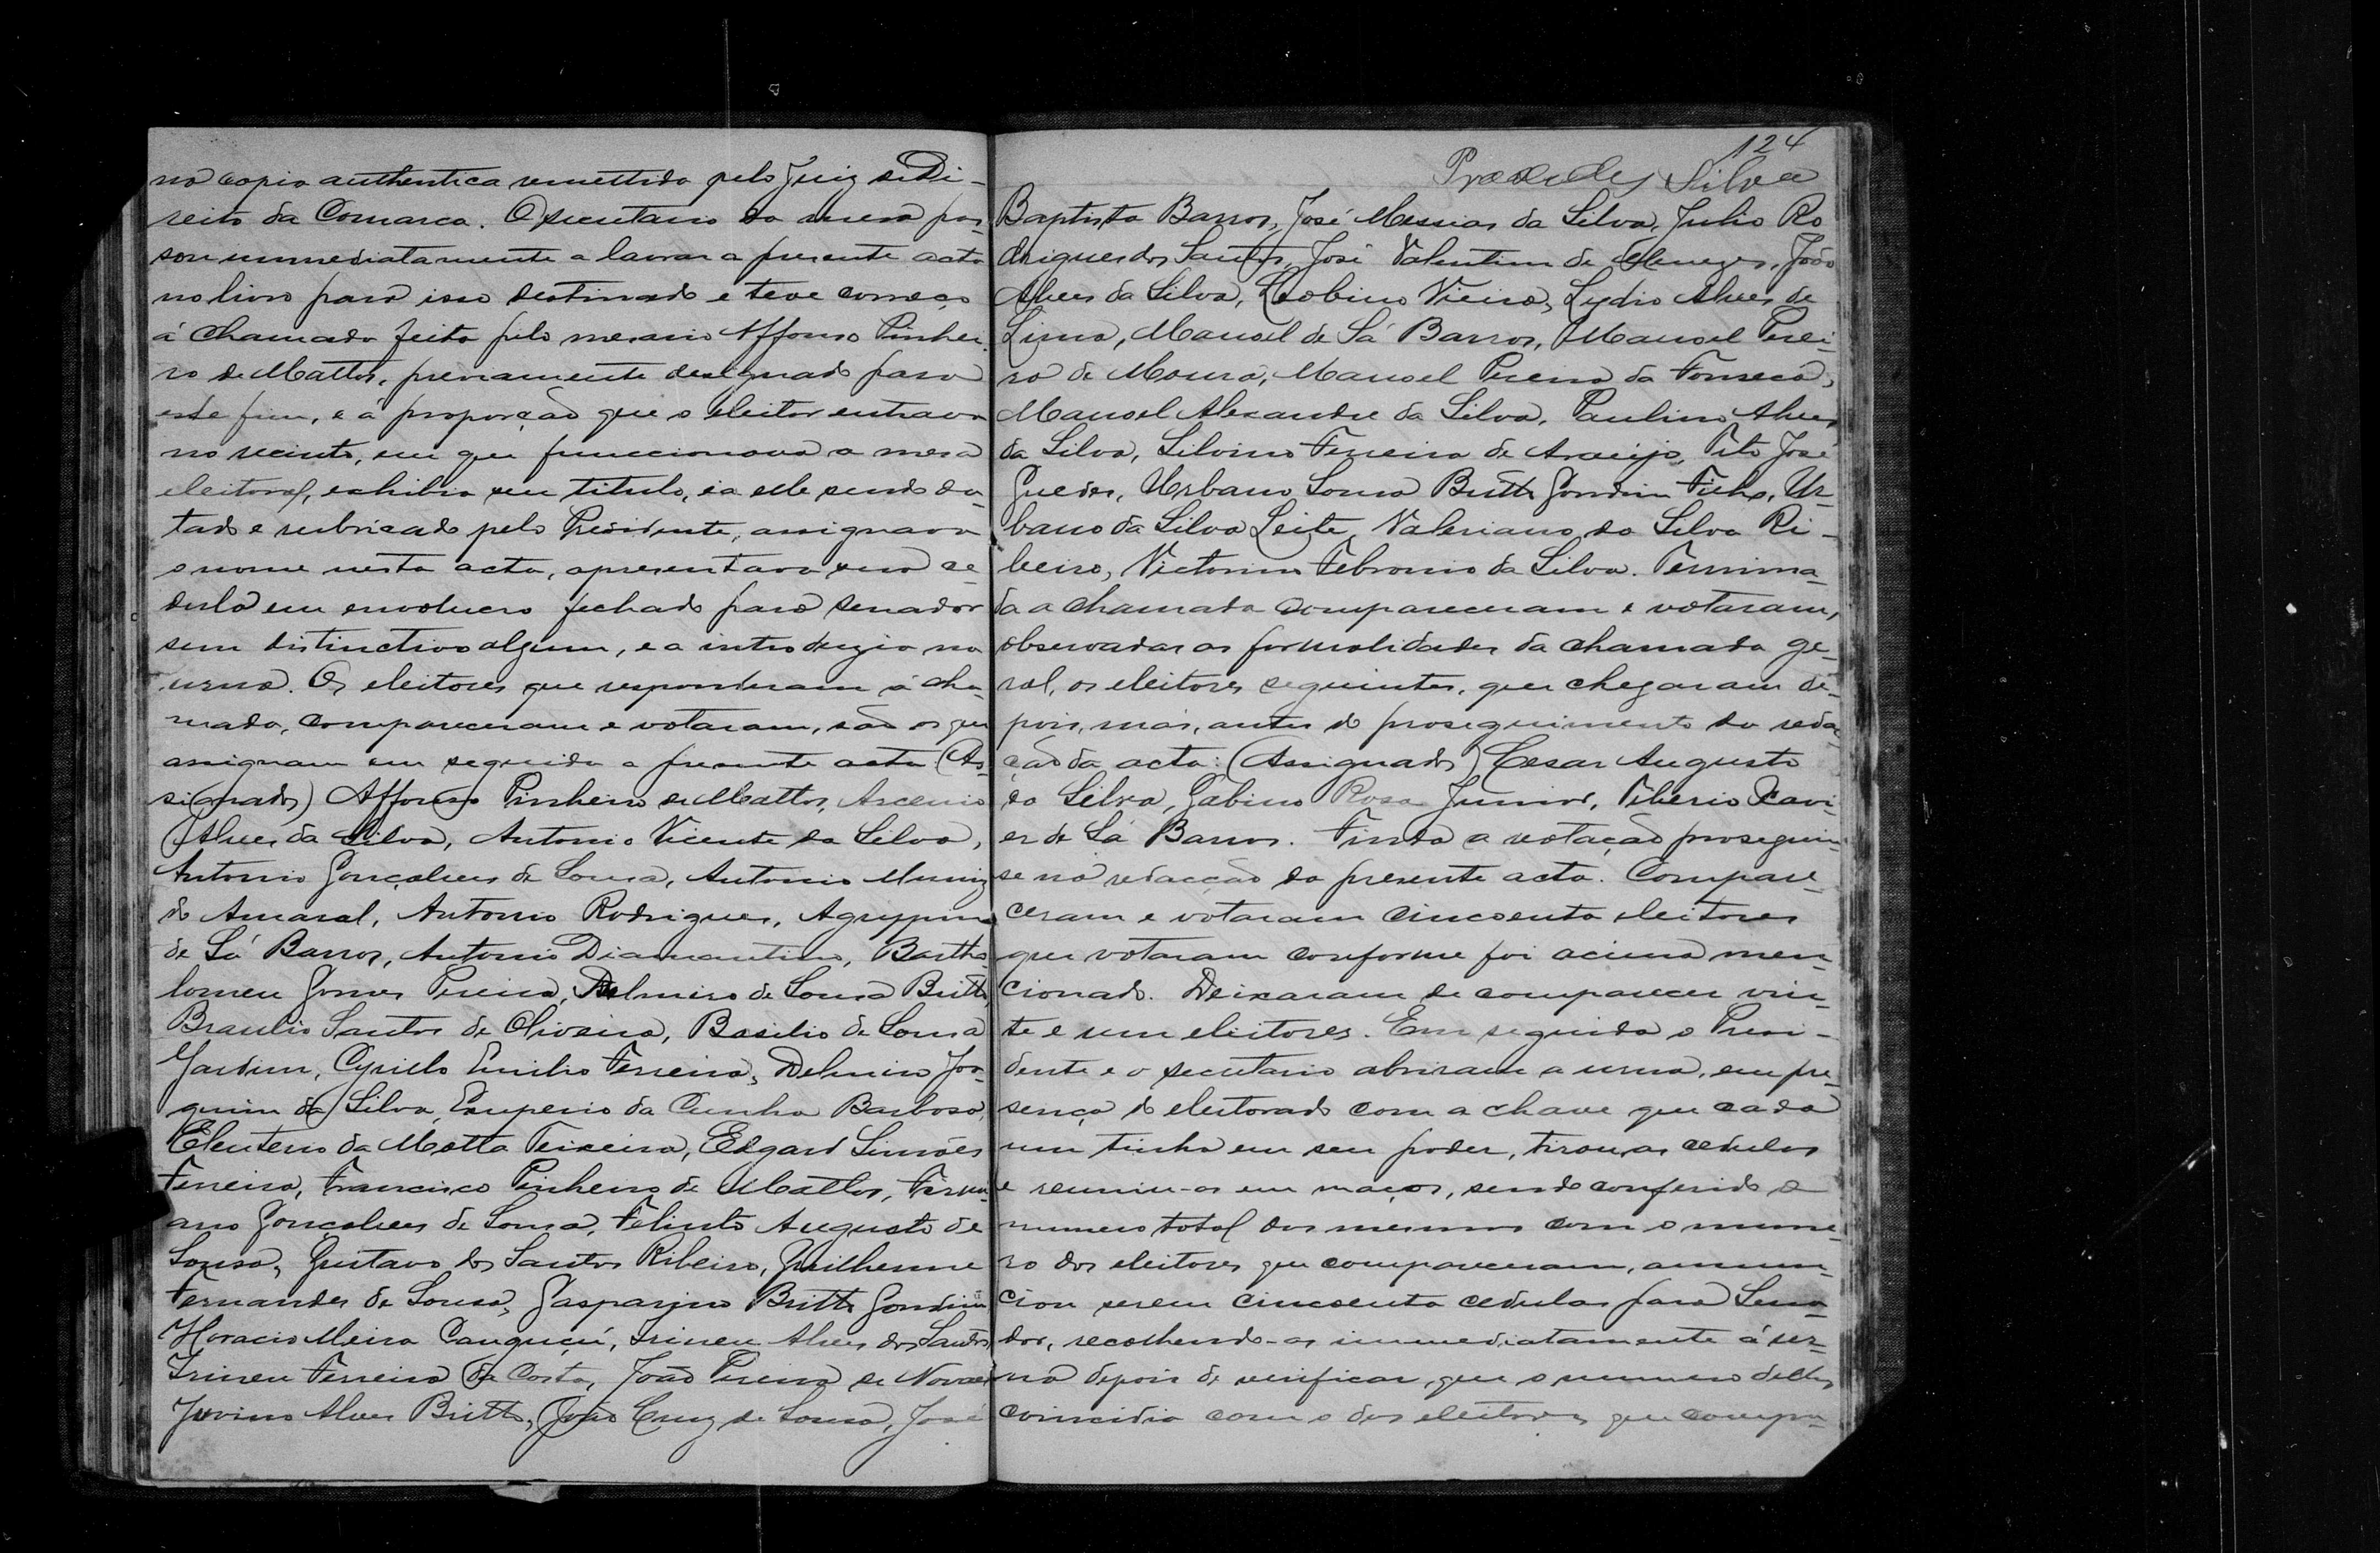 na copia authentica remettida pelo Juiz de Di-
reito da Comarca. O secretario da mesa pas-
sou immediatamente a lavrar a presente acta
no livro para isso destinado e teve começo
á chamada feita pelo mesario Affonso Pinhei-
ro de Mattos, previamente designado para
este fim, e á proporção que o eleitor entrava
no recinto, em que funccionava a mesa
eleitoral, exhibia seu titulo, e a elle sendo da-
tado e rubricado pelo Presidente, assignava
o nome nesta acta, apresentava sua ce-
dula em envolucro fechado para senador
sem distinctivo algum, e a introduzia na
urna. Os eleitores que responderam á cha-
mada, compareceram e votaram, são os que
assignam em seguida a presente acta (As-
signados) Affonso Pinheiro de Mattos, Ascenio
Alves da Silva, Antonio Vicente da Silva,
Antonio Gonçalves de Sousa, Antonio Muniz
do Amaral, Antonio Rodrigues, Agrippino
de Sá Barros, Antonio Diamantino, Bartho-
lomeu Gomes Pereira, Belmiro de Sousa Britto
Braulio Santos de Oliveira, Basilio de Sousa
Jardim, Cyrillo Emilio Ferreira, Delmiro Joa-
quim da Silva, Euperio da Cunha Barbosa,
Eleuterio da Motta Teixeira, Edgard Simões
Ferreira, Francisco Pinheiro de Mattos, Firmi-
ano Gonçalves de Sousa, Felinto Augusto de
Sousa, Gustavo dos Santos Ribeiro, Guilherme
Fernandes de Sousa, Gasparino Britto Gondim
Horacio Meira Canguçú, Irineu Alves dos Santos
Irineu Ferreira da Costa, João Pereira de Novaes
Juvino Alves Britto, João Cruz de Sousa, José
124
Praxedes Silva
Baptista Barros, José Messias da Silva, Julio Ro
drigues dos Santos, José Valentim de Menezes, João
Alves da Silva, Leobino Vieira, Lydio Alves de
Lima, Manoel de Sá Barros, Manoel Perei-
ra de Moura, Manoel Pereira da Fonseca,
Manoel Alexandre da Silva, Paulino Alves
da Silva, Silvino Ferreira de Araujo, Tito José
Guedes, Urbano Sousa Britto Gondim Filho, Ur-
bano da Silva Leite, Valeriano da Silva Ri-
beiro, Victorino Febronio da Silva. Termina-
da a chamada compareceram e votaram,
observadas as formalidades da chamada ge-
ral, os eleitores seguintes, que chegaram de-
pois, mas, antes do proseguimento da reda-
ção da acta: (Assignados) Cesar Augusto
da Silva, Gabino Rosa Junior, Tiberio Xavi-
er de Sá Barros. Finda a votação proseguiu-
se na redacção da presente acta. Compare-
ceram e votaram cincoenta eleitores
que votaram conforme foi acima men-
cionado. Deixaram de comparecer vin-
te e um eleitores. Em seguida o Presi-
dente e o secretario abriram a urna, em pre-
sença do eleitorado com a chave que cada
um tinha em seu poder, tirou as cedulas
e reuniu-as em maços, sendo conferido o
numero total das mesmas com o nume-
ro dos eleitores que compareceram, annun-
ciou serem cincoenta cedulas para Sena-
dor, recolhendo-as immediatamente á ur-
na depois de verificar, que o numero dellas
coincidia com o dos eleitores que compa-